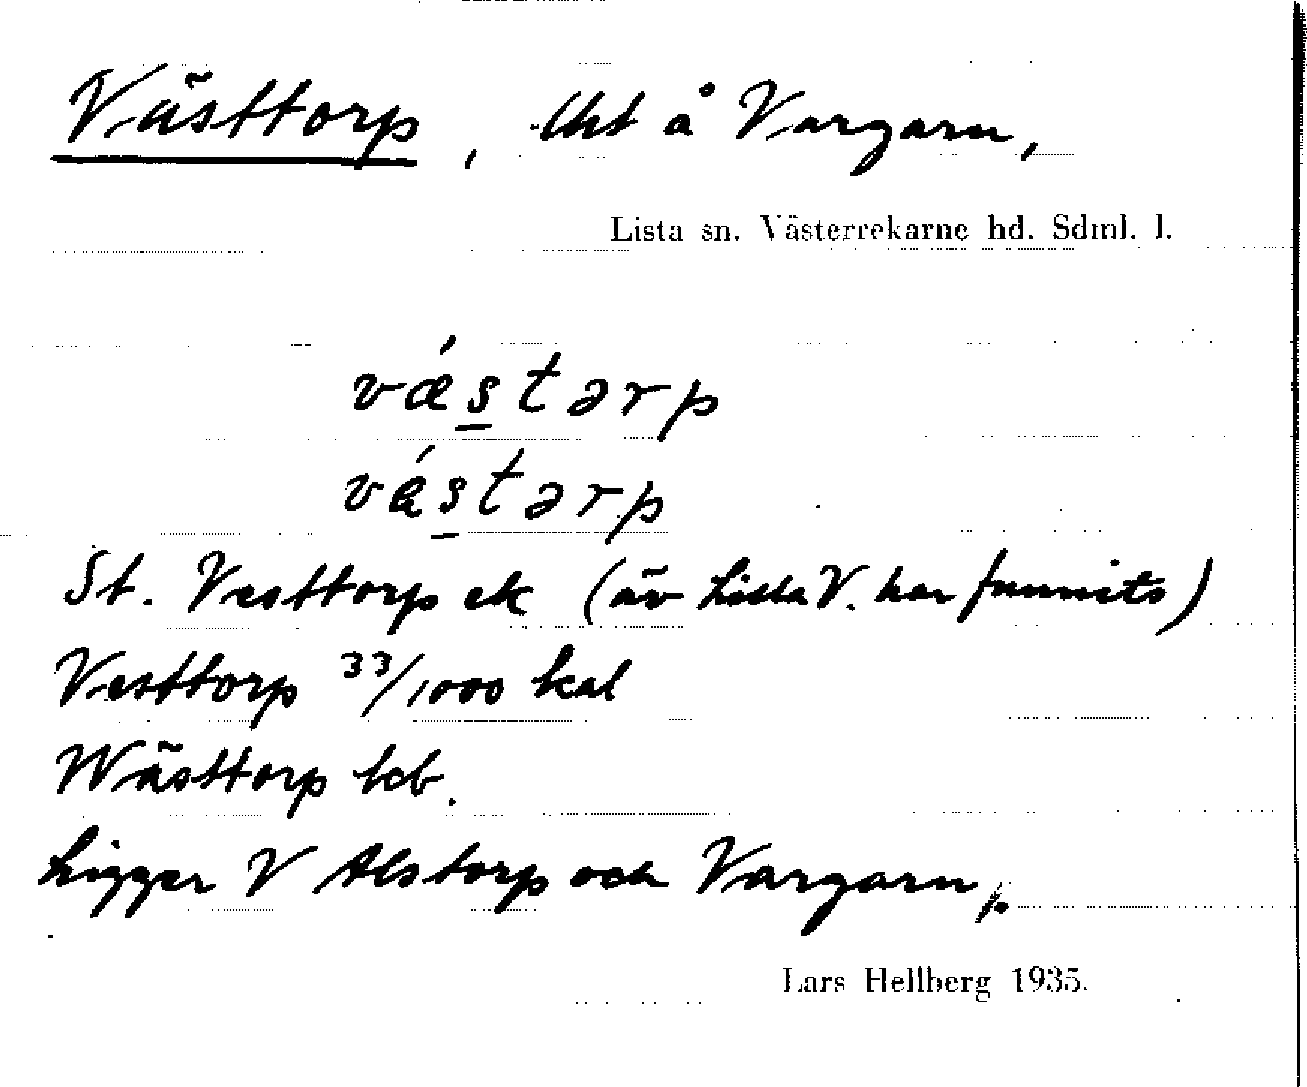 Västtorp, lht å Vargarn,
Lista sn. Västerrekarne hd. Sdml. l.
væ´s̲tərp
vá̈s̲tərp
St. Vesttorp ek (äv Lilla V. har funnits)
Vesttorp 33/1000 kal
Wästtorp hcb.
Ligger V Alstorp och Vargarn.
Lars Hellberg 1935.